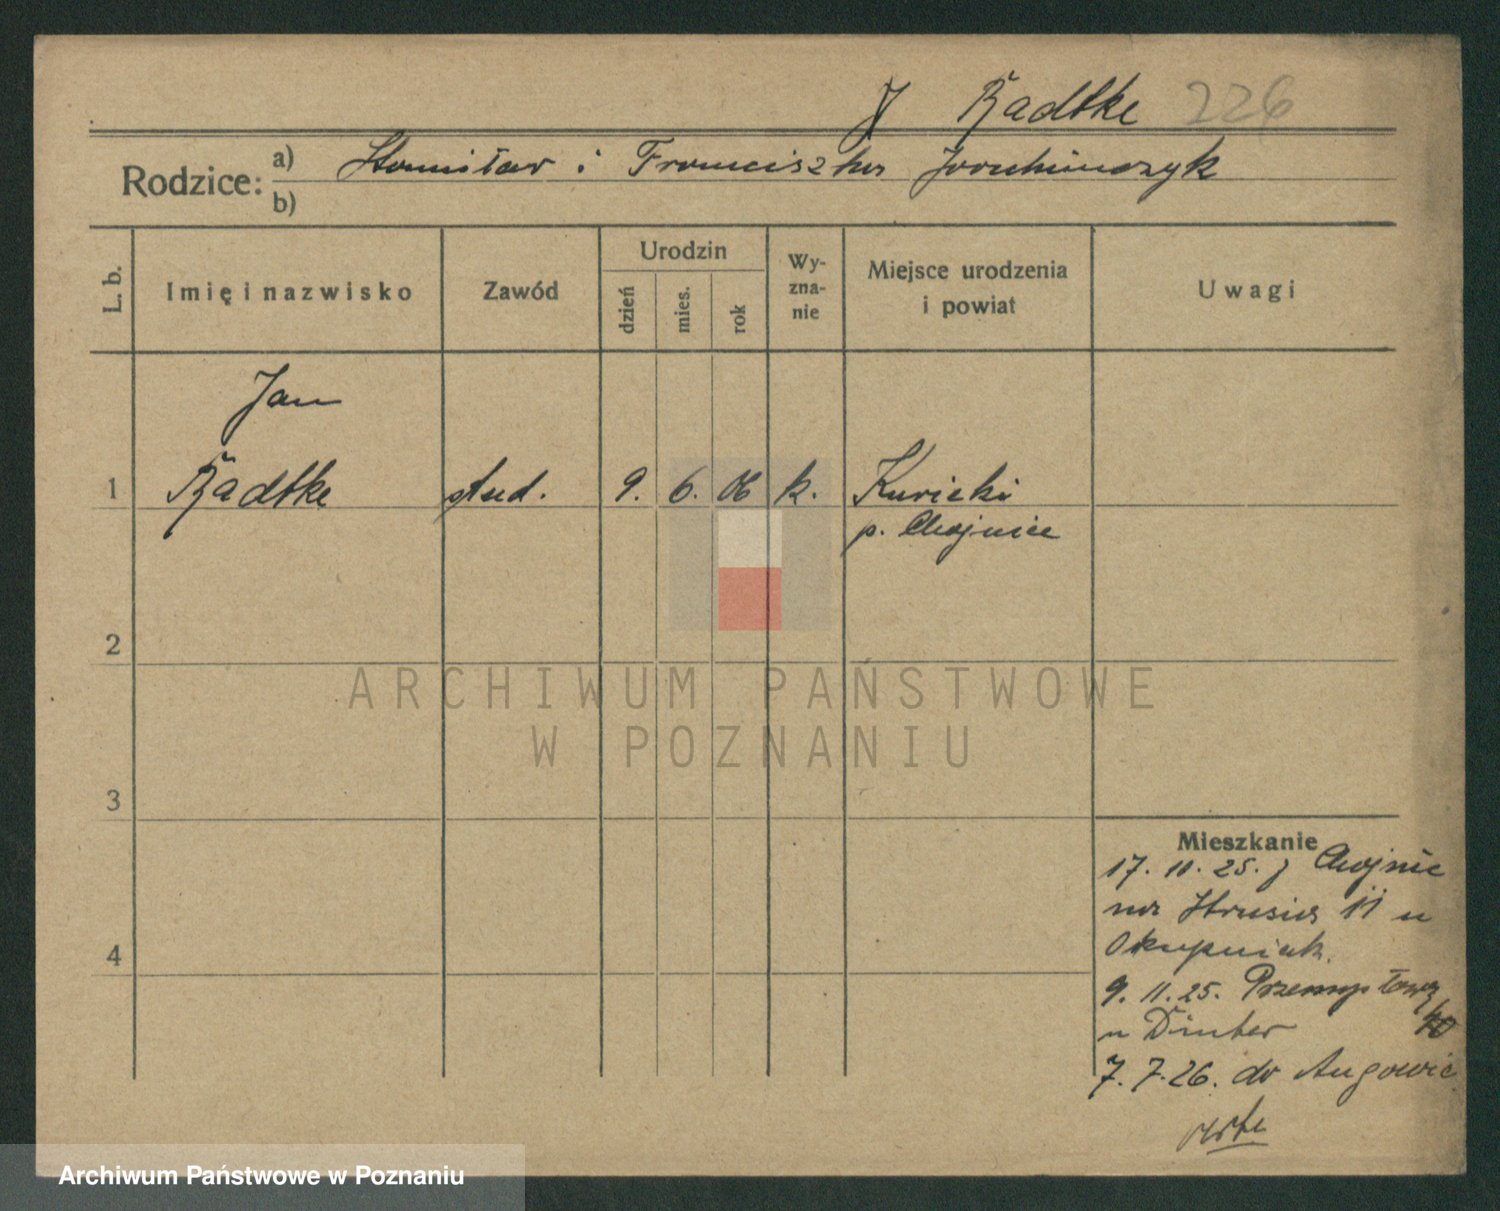 J Radtke 226
Rodzice: a) Stanisław i Franciszka
b)
L. b. Imię i nazwisko Zawód Urodzin dzień mies. rok Wyznanie Miejsce urodzenia i powiat Uwagi
Jan
1 Radtke stud. 9. 6. 06 k.
p. Chojnice
2
ARCHIWUM PAŃSTWOWE
W POZNANIU
3
Mieszkanie
17. 11. 25. z Chojnic
na Strusia 11 u
Okupniak.
4
9. 11. 25. Przemysłowa
u Dimter 40
7. 7. 26. do
verte
Archiwum Państwowe w Poznaniu